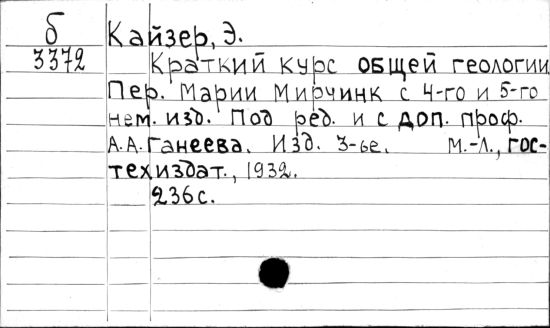 б
3372
Кайзер, Э.
Краткий курс общей геологии
Пер. Марии Мирчинк с 4-го и 5-го
нем. изд. Под ред. и с доп. проф.
А.А. Ганеева. Изд. 3-ье. М.-Л., гос-
техиздат., 1932.
236 с.